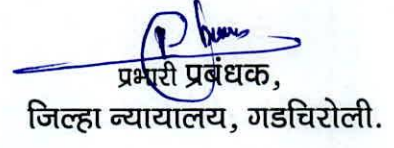 प्रभारी प्रबंधक,
जिल्हा न्यायालय, गडचिरोली.